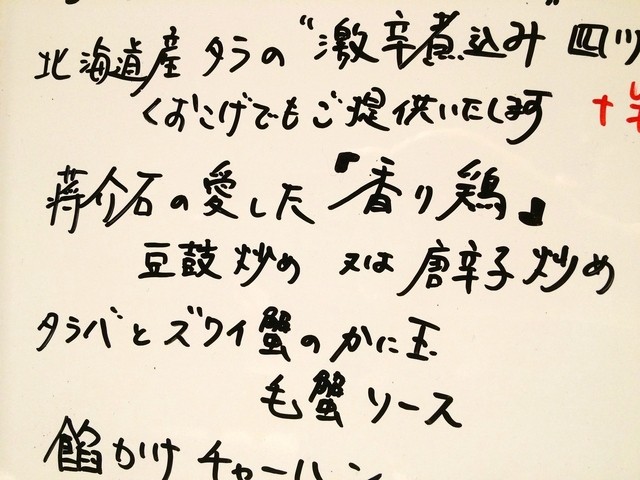 北海道産 タラの "激辛煮込み" 四
くおこげでもご提供いたします
蒋介石の愛した『香り鶏』
豆鼓炒め 又は 唐辛子炒め
タラバとズワイ蟹のかに玉
毛蟹ソース
餡かけチャーハン